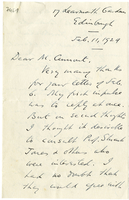 Edinburgh
Feb. 10, 1929
Dear M.
Very many thanks
for your letter of Feb.
6. My first impulse
was to reply at once.
But on second thoughts
I thought it desirable
to consult Prof.
& others who
were interested. I
had no doubt that
they would agree with